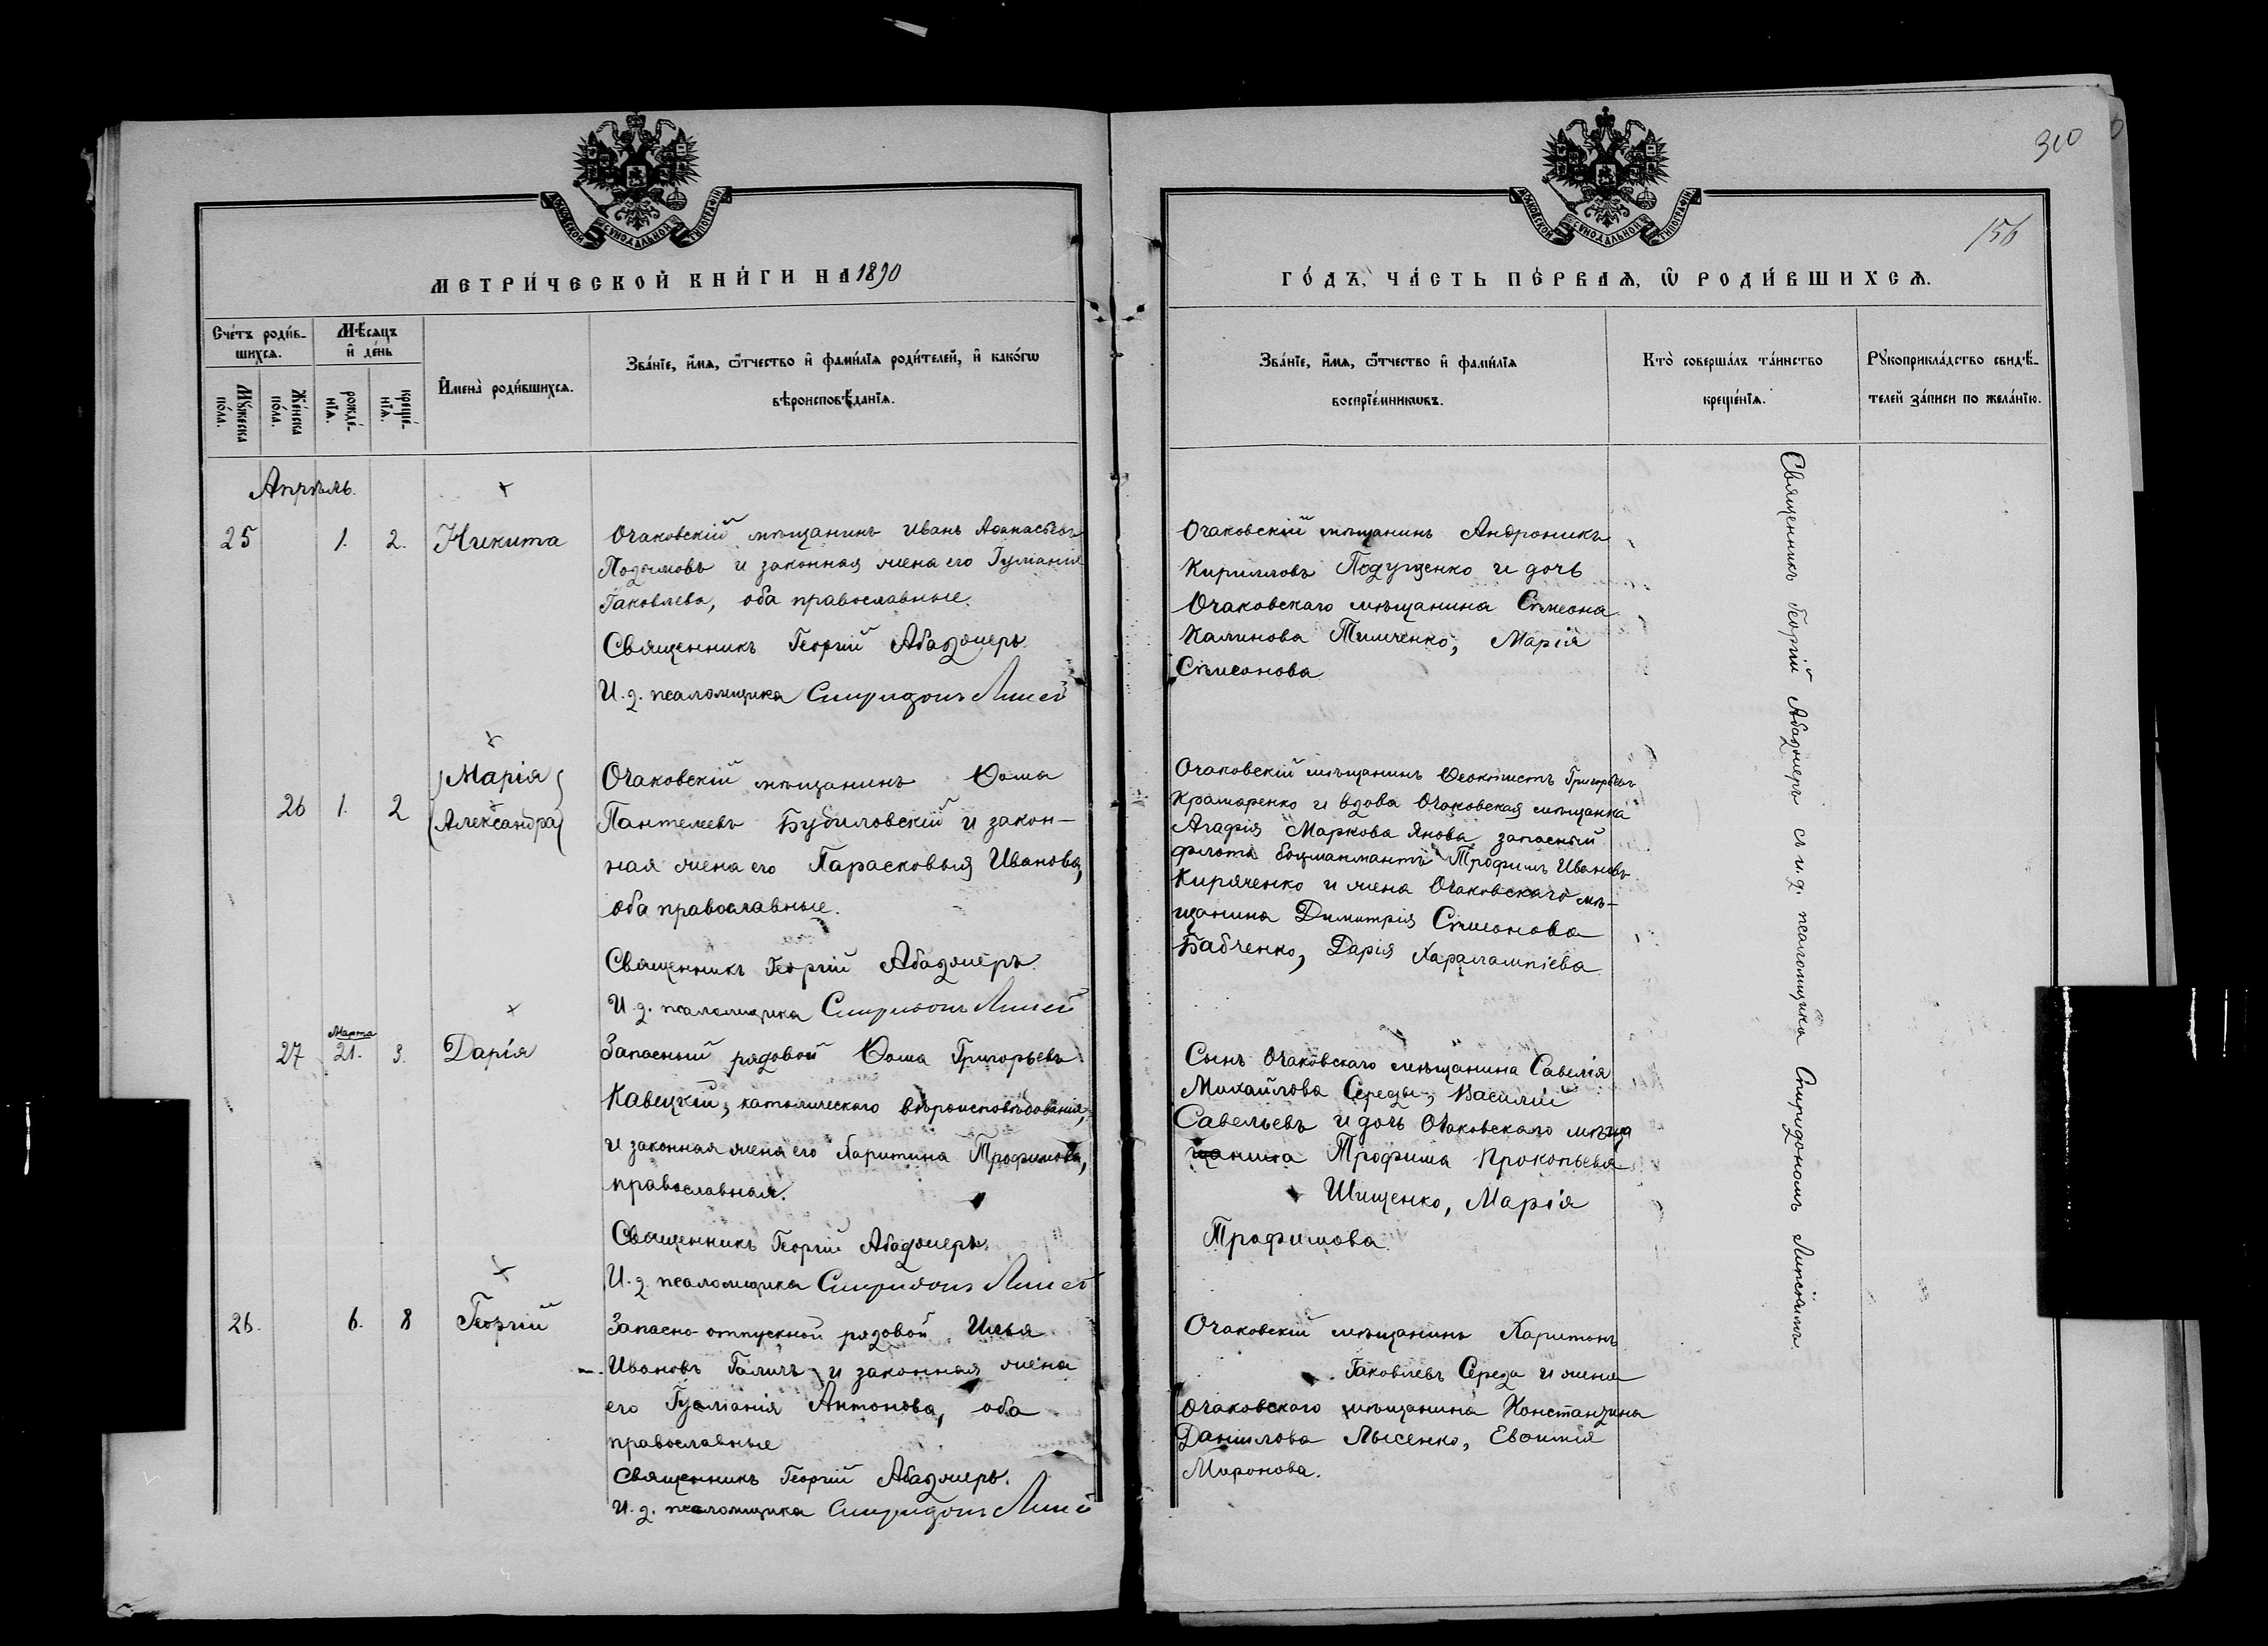 310
156
МОСКОВСКОЙ СѴНОДАЛЬНОЙ ТИПОГРАФІИ
МОСКОВСКОЙ СѴНОДАЛЬНОЙ ТИПОГРАФІИ
МЕТРИ́ЧЕСКОЙ КНИ́ГИ НА 1890
ГО́ДЪ, ЧА́СТЬ ПЕ́РВАѦ, Ѡ РОДИ́ВШИХСѦ.
Сче́тъ роди́в-
шихсѧ.
Мѣсѧцъ
и҆ де́нь
Мꙋ́жеска по́ла.
Же́нска по́ла.
рожде́-нїѧ.
креще́-нїѧ.
И҆мена̀ роди́вшихсѧ.
Зва́нїе, и҆́мѧ, ѻ҆́тчество и҆ фами́лїѧ роди́телей, и҆ како́гѡ
вѣроисповѣ́данїѧ.
Зва́нїе, и҆́мѧ, ѻ҆́тчество и҆ фами́лїѧ
воспрїе́мникѡвъ.
Кто̀ соверша́лъ та́инство
креще́нїѧ.
Рꙋкоприкла́дство свидѣ́-
телей за́писи по жела́нїю.
Апрѣль.
25 1. 2. Никита
Очаковскій мѣщанинъ Иванъ Аѳанасьевъ
и законная жена его Іуліанія
Іаковлева, оба православные.
Священникъ Георгій Абаджеръ.
И. д. псаломщика Спиридонъ
Очаковскій мѣщанинъ Андроникъ
Кирилловъ Подущенко и дочь
Очаковскаго мѣщанина Сѵмеона
Калинова Тимченко, Марія
Сѵмеонова
26 1. 2 Марія
Александра
Очаковскій мѣщанинъ Ѳома
Пантелеевъ Будиловскій и закон-
ная жена его Парасковья Иванова,
оба православные.
Священникъ Георгій Абаджеръ.
И. д. псаломщика Спиридонъ
Очаковскій мѣщанинъ Ѳеоктистъ Григорьевъ
Крамаренко и вдова Очаковская мѣщанка
Агафія Маркова Янова, запасный
флота боцманматъ Трофимъ Ивановъ
Киряченко и жена Очаковскаго мѣ-
щанина Димитрія Сѵмеонова
Бабченко, Дарія Харалампіева
27 Марта 21. 3. Дарія
Запасный рядовой Ѳома Григорьевъ
Кавецкій, католическаго вѣроисповѣданія,
и законная жена его Харитина Трофимова,
православная.
Священникъ Георгій Абаджеръ.
И. д. псаломщика Спиридонъ
Сынъ Очаковскаго мѣщанина Савелія
Михайлова Середы, Василій
Савельевъ и дочь Очаковскаго мѣща
щанина Трофима Прокопьева
Шищенко, Марія
Трофимова.
26. 6. 8 Георгій
Запасно-отпускной рядовой Илья
Ивановъ Галичъ и законная жена
его Іуліанія Антонова, оба
православные
Священникъ Георгій Абаджеръ.
И. д. псаломщика Спиридонъ
Очаковскій мѣщанинъ Харитонъ
Іаковлевъ Середа и жена
Очаковскаго мѣщанина Константина
Даніилова Лысенко, Евѳимія
Миронова.
Священникъ Георгій Абаджеръ съ и. д. псаломщика Спиридономъ